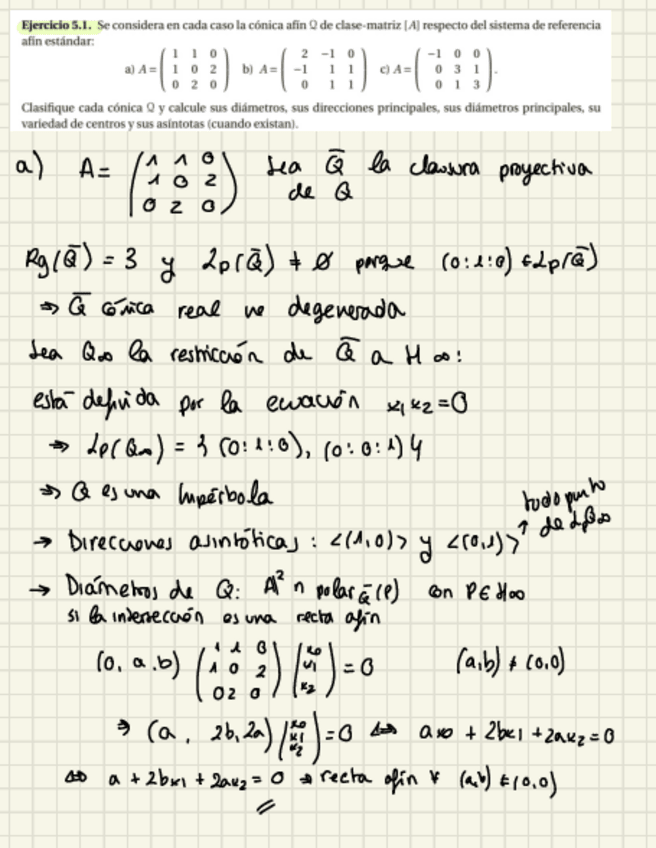 Ejercicio 5.1. Se considera en cada caso la cónica afín Q de clase-matriz [A] respecto del sistema de referencia
afín estándar:
a) A = ( 1 1 0 ; 1 0 2 ; 0 2 0 ) b) A = ( 2 −1 0 ; −1 1 1 ; 0 1 1 ) c) A = ( −1 0 0 ; 0 3 1 ; 0 1 3 ).
Clasifique cada cónica Q y calcule sus diámetros, sus direcciones principales, sus diámetros principales, su
variedad de centros y sus asíntotas (cuando existan).
a) A = ( 1 1 0 ; 1 0 2 ; 0 2 0 ) Sea Q̄ la clausura proyectiva
de Q
Rg(Q̄) = 3 y Lp(Q̄) ≠ ∅ porque (0:1:0) ∈ Lp(Q̄)
⇒ Q̄ cónica real no degenerada
Sea Q∞ la restricción de Q̄ a H∞:
está definida por la ecuación x1x2 = 0
⇒ Lp(Q∞) = { (0:1:0), (0:0:1) }
⇒ Q es una hipérbola
todo punto
de LpQ∞
→ Direcciones asintóticas: <(1,0)> y <(0,1)> ↑
→ Diámetros de Q: A² ∩ polar Q̄ (P) con P ∈ H∞
si la intersección es una recta afín
(0, a, b) ( 1 1 0 ; 1 0 2 ; 0 2 0 ) ( x0 ; x1 ; x2 ) = 0 (a,b) ≠ (0,0)
⇒ (a, 2b, 2a) ( x0 ; x1 ; x2 ) = 0 ⇔ ax0 + 2bx1 + 2ax2 = 0
⇔ a + 2bx1 + 2ax2 = 0 → recta afín ∀ (a,b) ≠ (0,0)